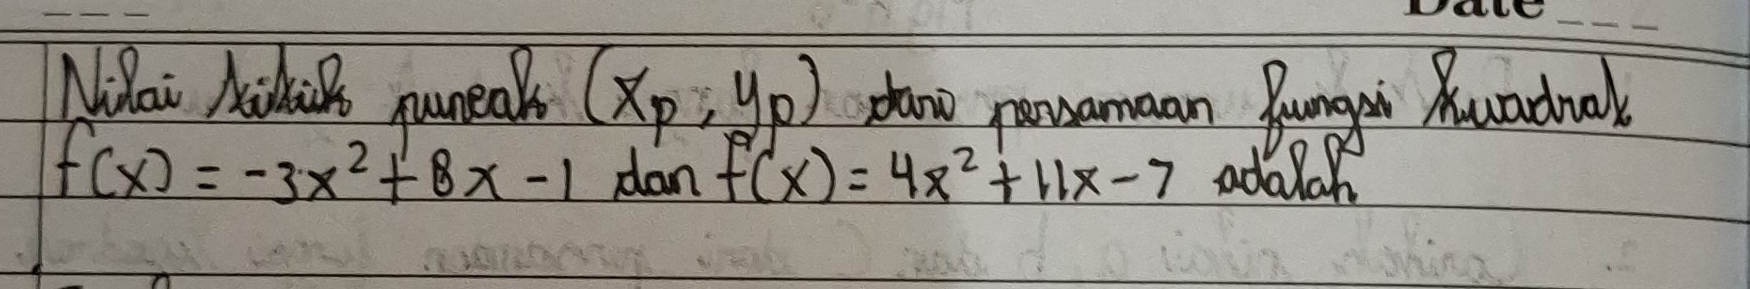 Date
Nilai titik puncak (xp, yp) dari persamaan fungsi kuadrat
f(x) = -3x² + 8x - 1 dan f(x) = 4x² + 11x - 7 adalah